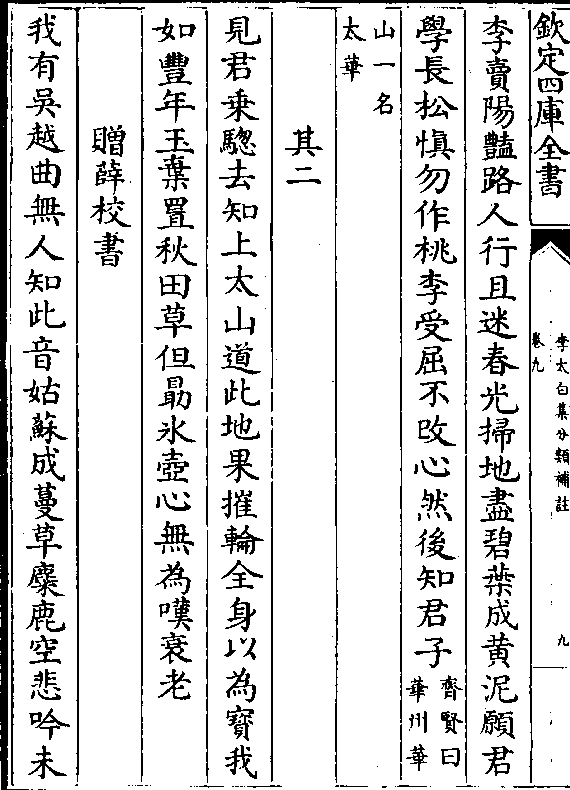 欽定四庫全書
李太白集分類補註
卷九
九
李賣陽豔路人行且迷春光掃地盡碧葉成黄泥願君
學長松慎勿作桃李受屈不改心然後知君子齊賢曰
華州華
山一名
太華
其二
見君乗驄去知上太山道此地果摧輪全身以為寳我
如豐年玉棄置秋田草但勗氷壺心無為嘆衰老
贈薛校書
我有吳越曲無人知此音姑蘇成蔓草麋鹿空悲吟未